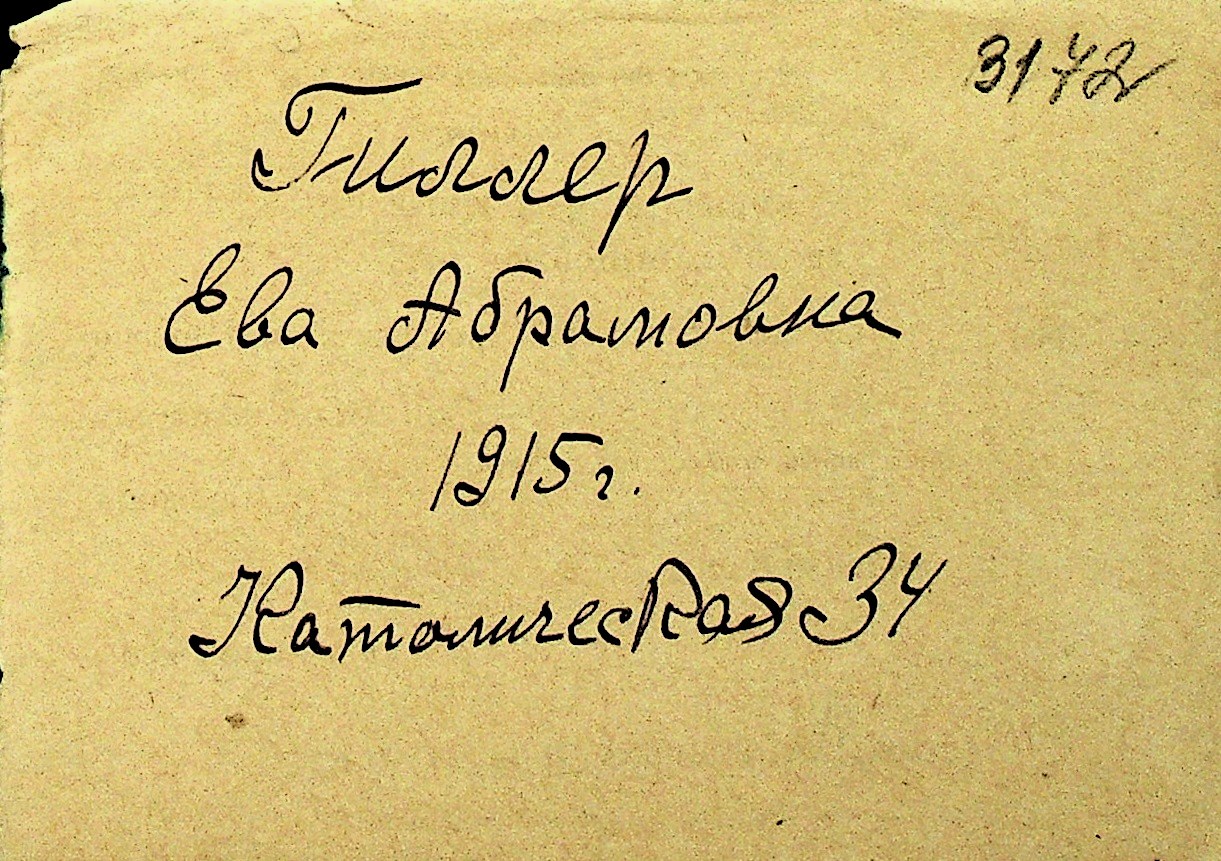 3172
Гиллер
Ева Абрамовна
1915г.
Католическая 34